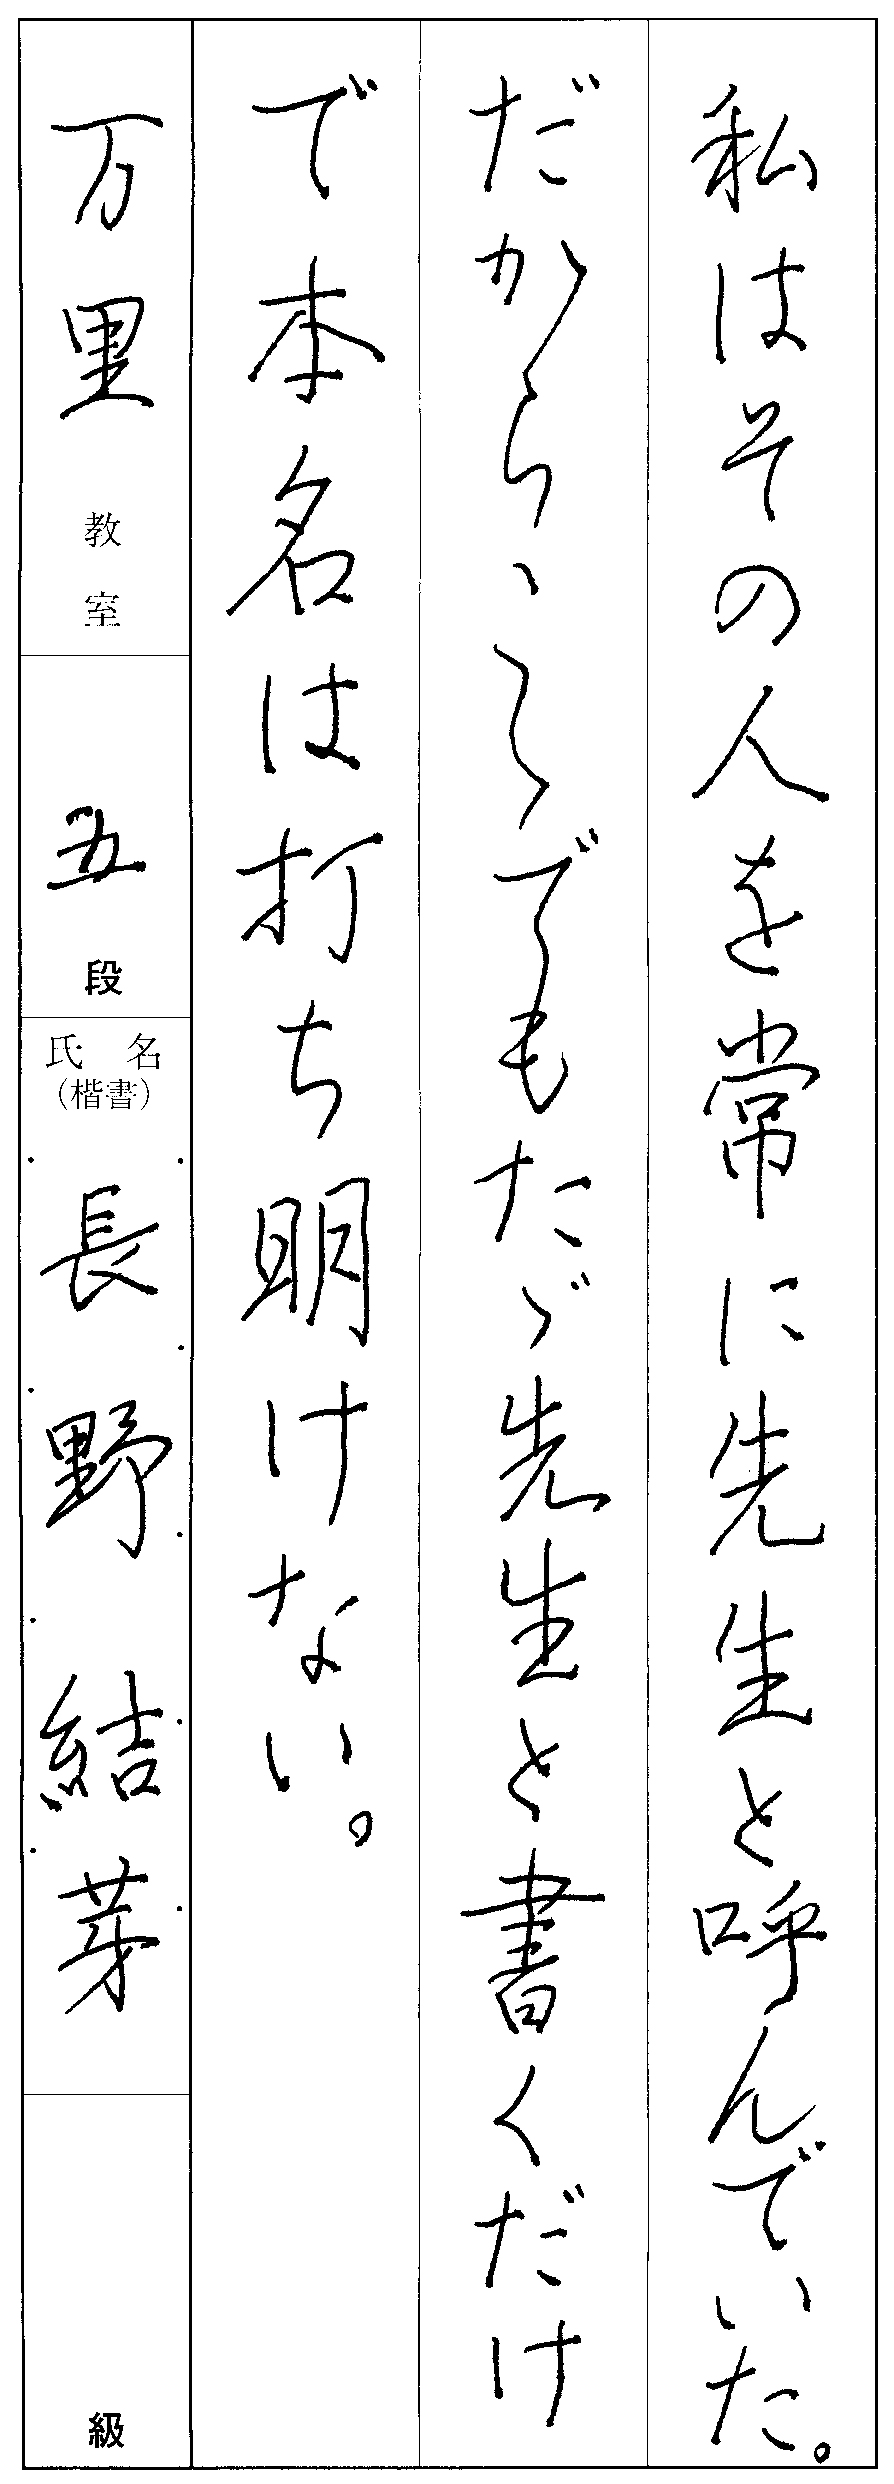 私はその人を常に先生と呼んでいた。
だから、こゝでもたゞ先生と書くだけ
で本名は打ち明けない。
万里教室
五段
氏名
(楷書)
長野結芽
級